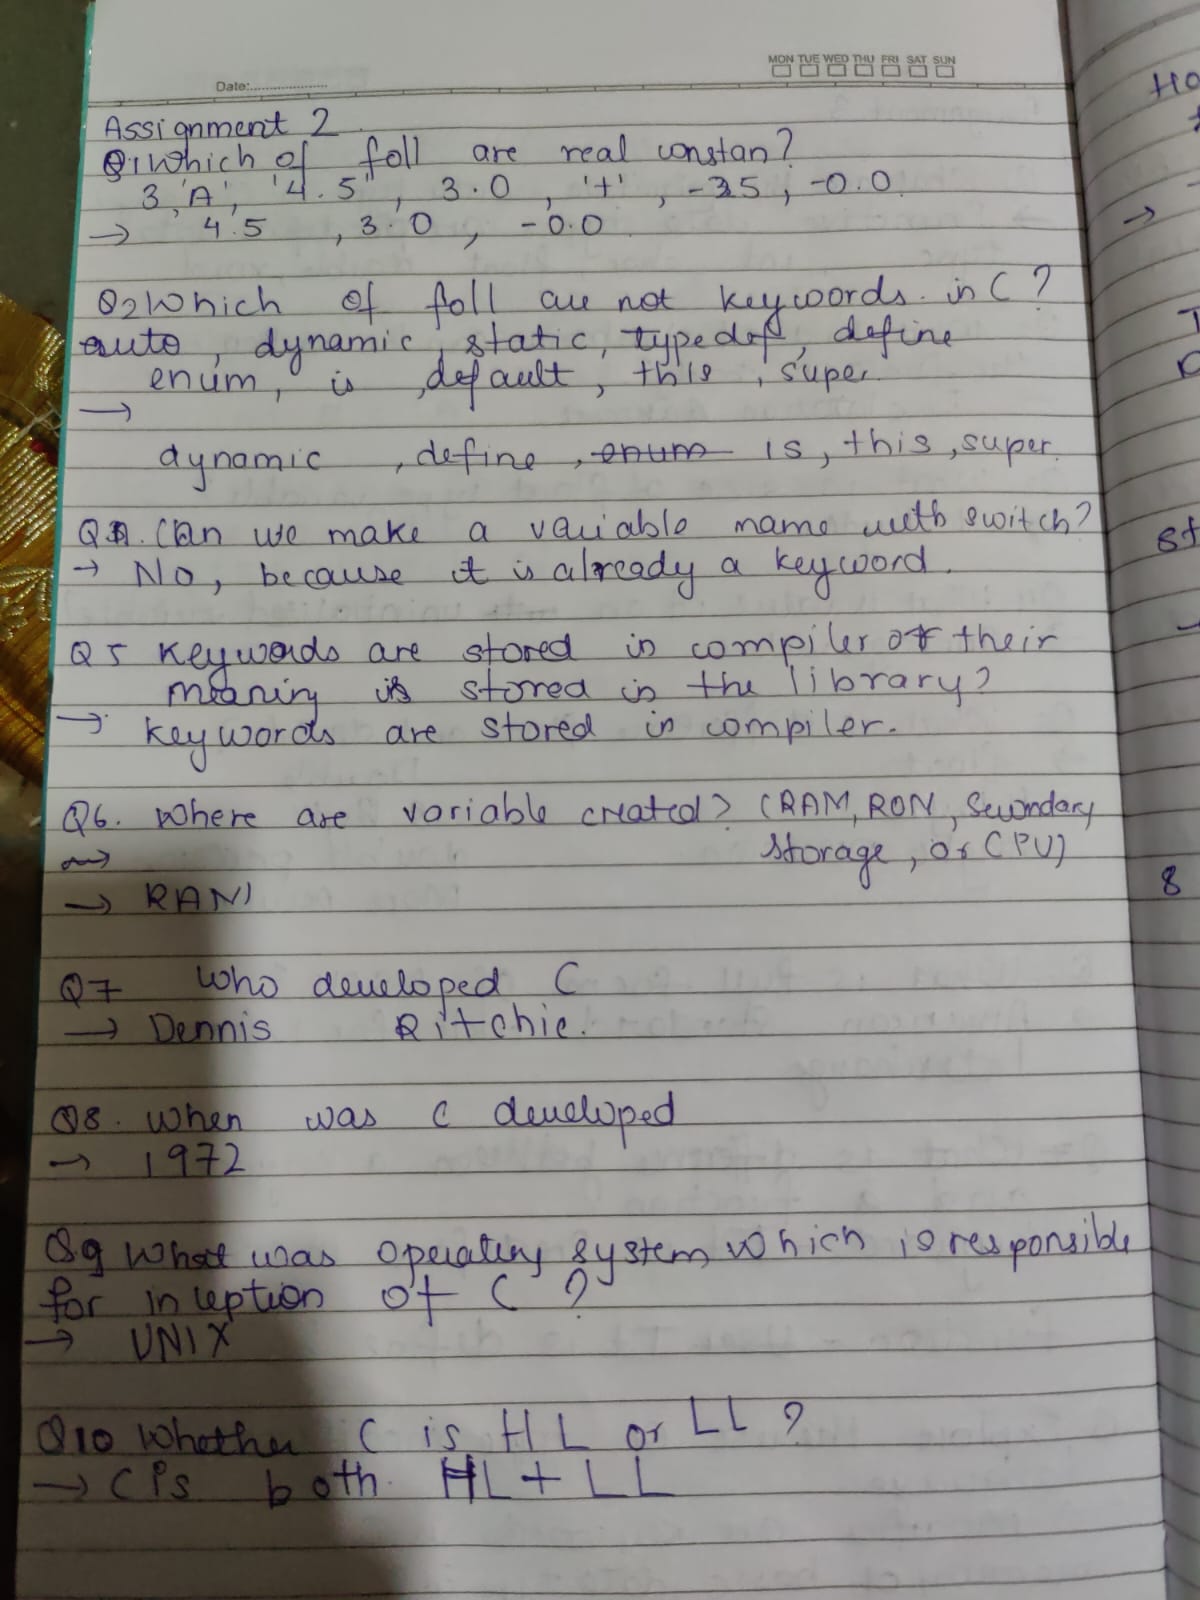 MON TUE WED THU FRI SAT SUN
Date:
Assignment 2
Q1 Which of foll are real constan?
3, 'A', '4.5", 3.0, '+', -35, -0.0
→ 4.5, 3.0, -0.0
Q2 Which of foll are not keywords in C?
auto, dynamic, static, typedef, define
enum, is, default, this, super
→
dynamic, define, enum is, this, super.
Q4. Can we make a variable name with switch?
→ No, because it is already a keyword.
Q5 Keywords are stored in compiler or their
meaning is stored in the library?
→ Keywords are stored in compiler.
Q6. Where are variable created? (RAM, ROM, Secondary
storage, or CPU)
→
→ RAM
Q7 Who developed C
→ Dennis Ritchie.
Q8. When was C developed
→ 1972
Q9 What was operating system which is responsible
for inception of C?
→ UNIX
Q10 Whether C is HL or LL?
→ C is both HL + LL
Ho
→
st
8